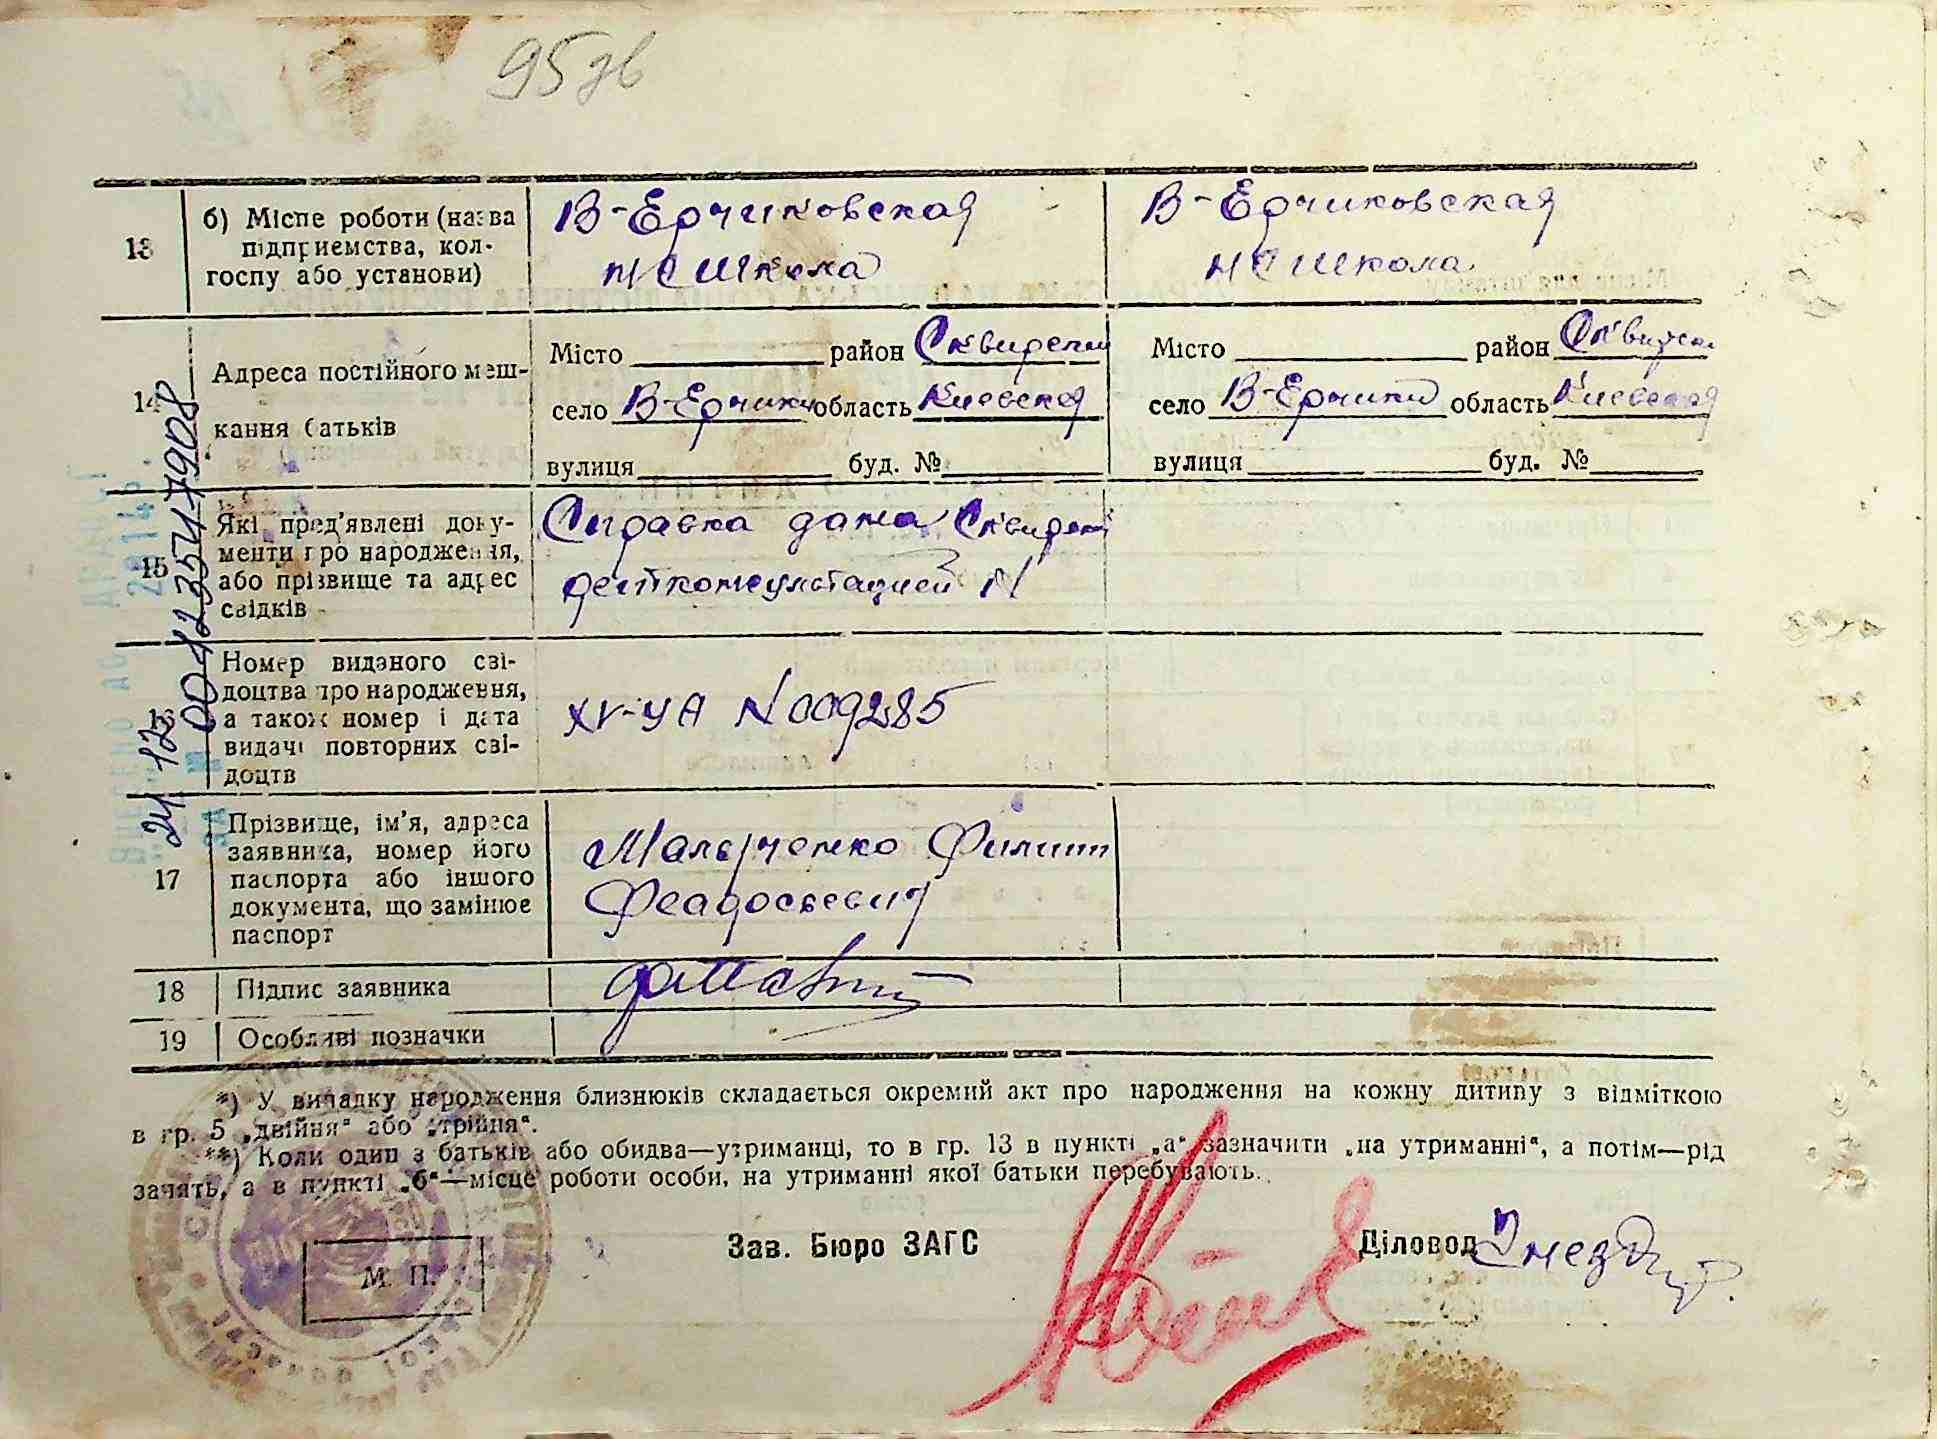 95 зв
13
б) Місце роботи (назва
підприємства, кол-
госпу або установи)
В-Ерчиковская
НСШкола
В-Ерчиковская
НСШкола
14
Адреса постійного меш-
кання батьків
Місто район Сквирский
село В-Ерчики область Киевская
вулиця буд. №
Місто район Сквирский
село В-Ерчики область Киевская
вулиця буд. №
15
Які пред'явлені доку-
менти про народження,
або прізвище та адрес
свідків
Справка дана Сквирской
детконсультацией N
16
Номер виданого сві-
доцтва про народження,
а також номер і дата
видачі повторних сві-
доцтв
XV-УА N009285
17
Прізвище, ім'я, адреса
заявника, номер його
паспорта або іншого
документа, що замінює
паспорт
Малярченко Филипп
Феадосьевич
18
Підпис заявника
19
Особливі позначки
24 12 0041235417908
*) У випадку народження близнюків складається окремий акт про народження на кожну дитину з відміткою
в гр. 5 „двійня“ або „трійня“.
**) Коли один з батьків або обидва—утриманці, то в гр. 13 в пункті „а“ зазначити „на утриманні“, а потім—рід
занять, а в пункті „б“—місце роботи особи, на утриманні якої батьки перебувають.
М. П.
Зав. Бюро ЗАГС
Діловод